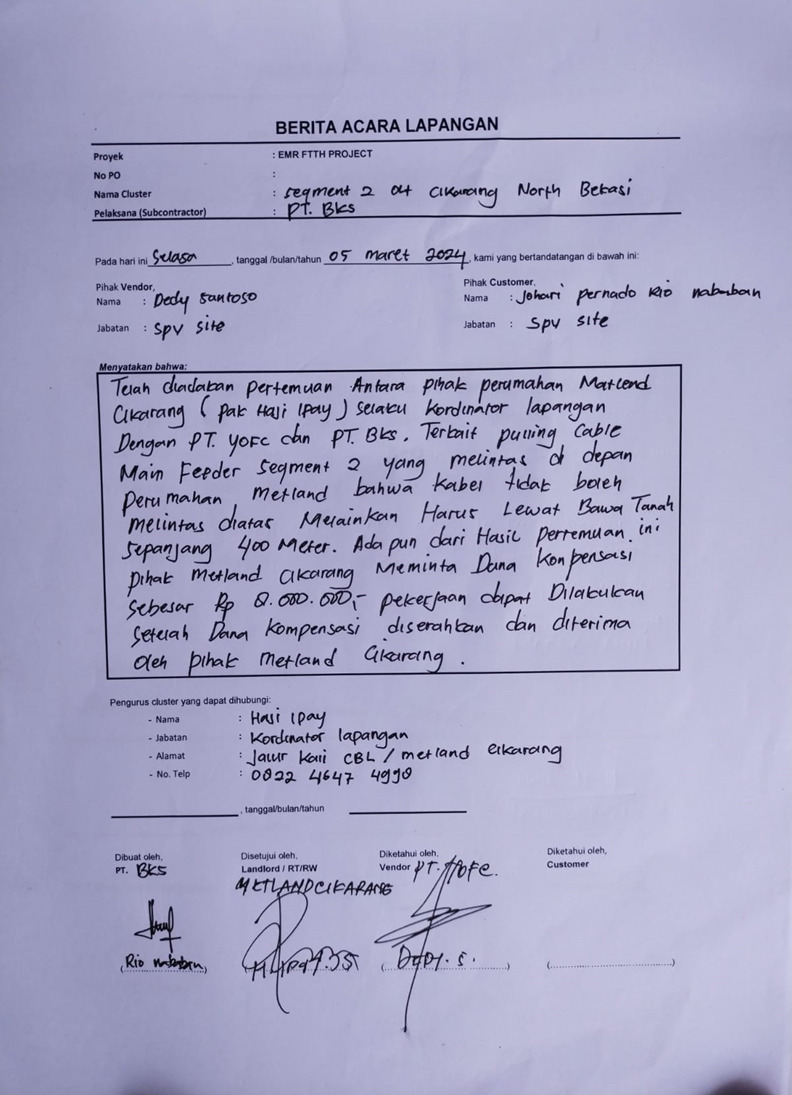 BERITA ACARA LAPANGAN
Proyek : EMR FTTH PROJECT
No PO :
Nama Cluster : segment 2 04 Cikarang North Bekasi
Pelaksana (Subcontractor) : PT. Bks
Pada hari ini Selasa, tanggal /bulan/tahun 05 maret 2024, kami yang bertandatangan di bawah ini:
Pihak Vendor, Pihak Customer,
Nama : Dedy santoso Nama : Johari pernado Rio nababan
Jabatan : spv site Jabatan : spv site
Menyatakan bahwa:
Telah diadakan pertemuan Antara pihak perumahan Matlend
Cikarang ( pak Haji Ipay ) selaku kordinator lapangan
Dengan PT. YOFC dan PT. Bks. Terkait pulling Cable
Main Feeder segment 2 yang melintas di depan
perumahan metland bahwa kabel tidak boleh
melintas diatas Melainkan Harus Lewat Bawa Tanah
sepanjang 400 Meter. Ada pun dari Hasil pertemuan ini
pihak metland cikarang Meminta Dana konpensasi
sebesar Rp 8.000.000,- pekerjaan dapat Dilakukan
setelah Dana kompensasi diserahkan dan diterima
oleh pihak metland Cikarang.
Pengurus cluster yang dapat dihubungi:
- Nama : Haji Ipay
- Jabatan : Kordinator lapangan
- Alamat : Jalur Kali CBL / metland cikarang
- No. Telp : 0822 4647 4998
, tanggal/bulan/tahun
Dibuat oleh, Disetujui oleh, Diketahui oleh, Diketahui oleh,
PT. BKS Landlord / RT/RW Vendor PT. Customer
METLAND CIKARANG
(Rio nababan) DEDY. S.